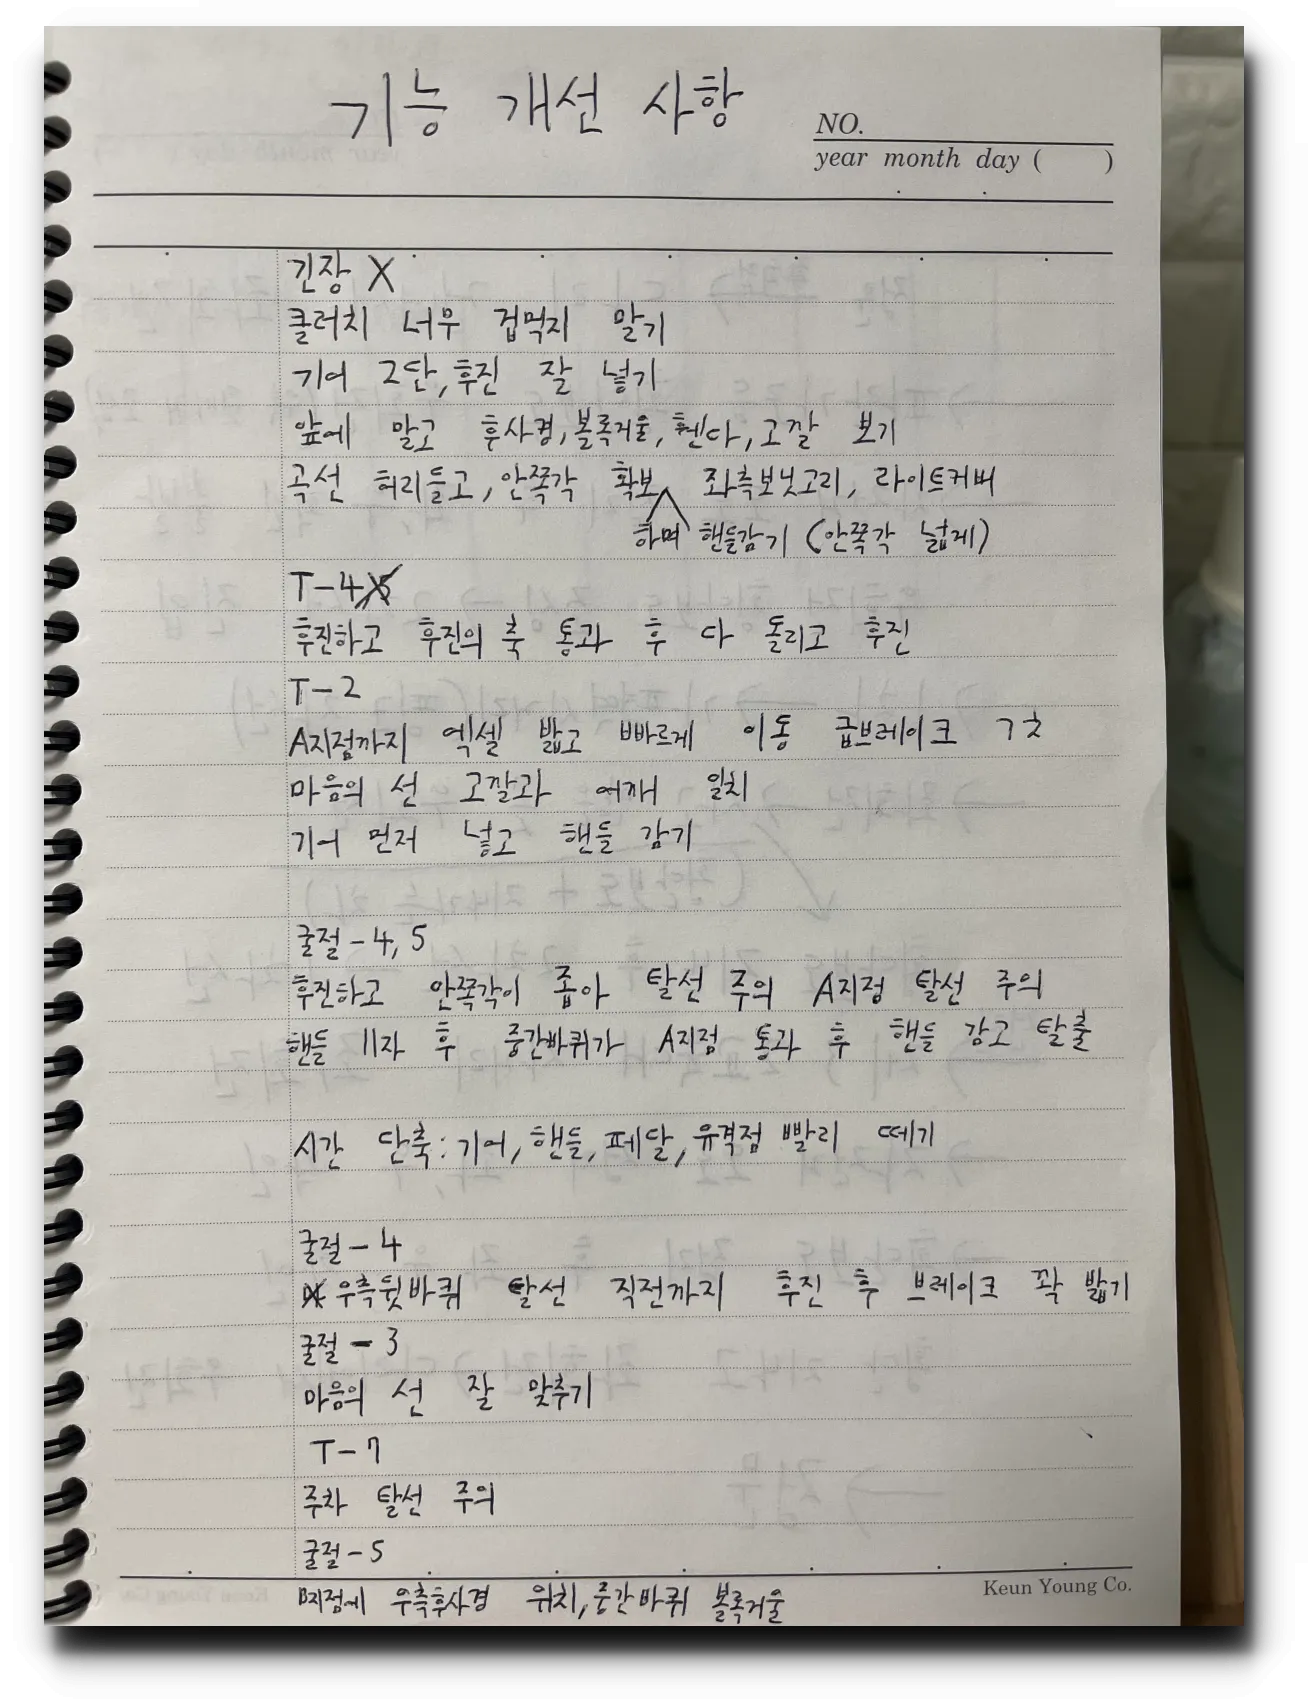 기능 개선 사항
NO.
year month day ( )
긴장 X
클러치 너무 겁먹지 말기
기어 2단, 후진 잘 넣기
앞에 말고 후사경, 볼록거울, 휀다, 고깔 보기
곡선 허리들고, 안쪽각 확보 좌측보닛고리, 라이트커버
하며 핸들감기 (안쪽각 넓게)
T-4
후진하고 후진의 축 통과 후 다 돌리고 후진
T-2
A지점까지 엑셀 밟고 빠르게 이동 급브레이크 ㄱㅊ
마음의 선 고깔과 어깨 일치
기어 먼저 넣고 핸들 감기
굴절-4, 5
후진하고 안쪽각이 좁아 탈선 주의 A지점 탈선 주의
핸들 11자 후 중간바퀴가 A지점 통과 후 핸들 감고 탈출
시간 단축: 기어, 핸들, 페달, 유격점 빨리 떼기
굴절-4
우측뒷바퀴 탈선 직전까지 후진 후 브레이크 꽉 밟기
굴절-3
마음의 선 잘 맞추기
T-7
주차 탈선 주의
굴절-5
B지점에 우측후사경 위치, 중간바퀴 볼록거울
Keun Young Co.